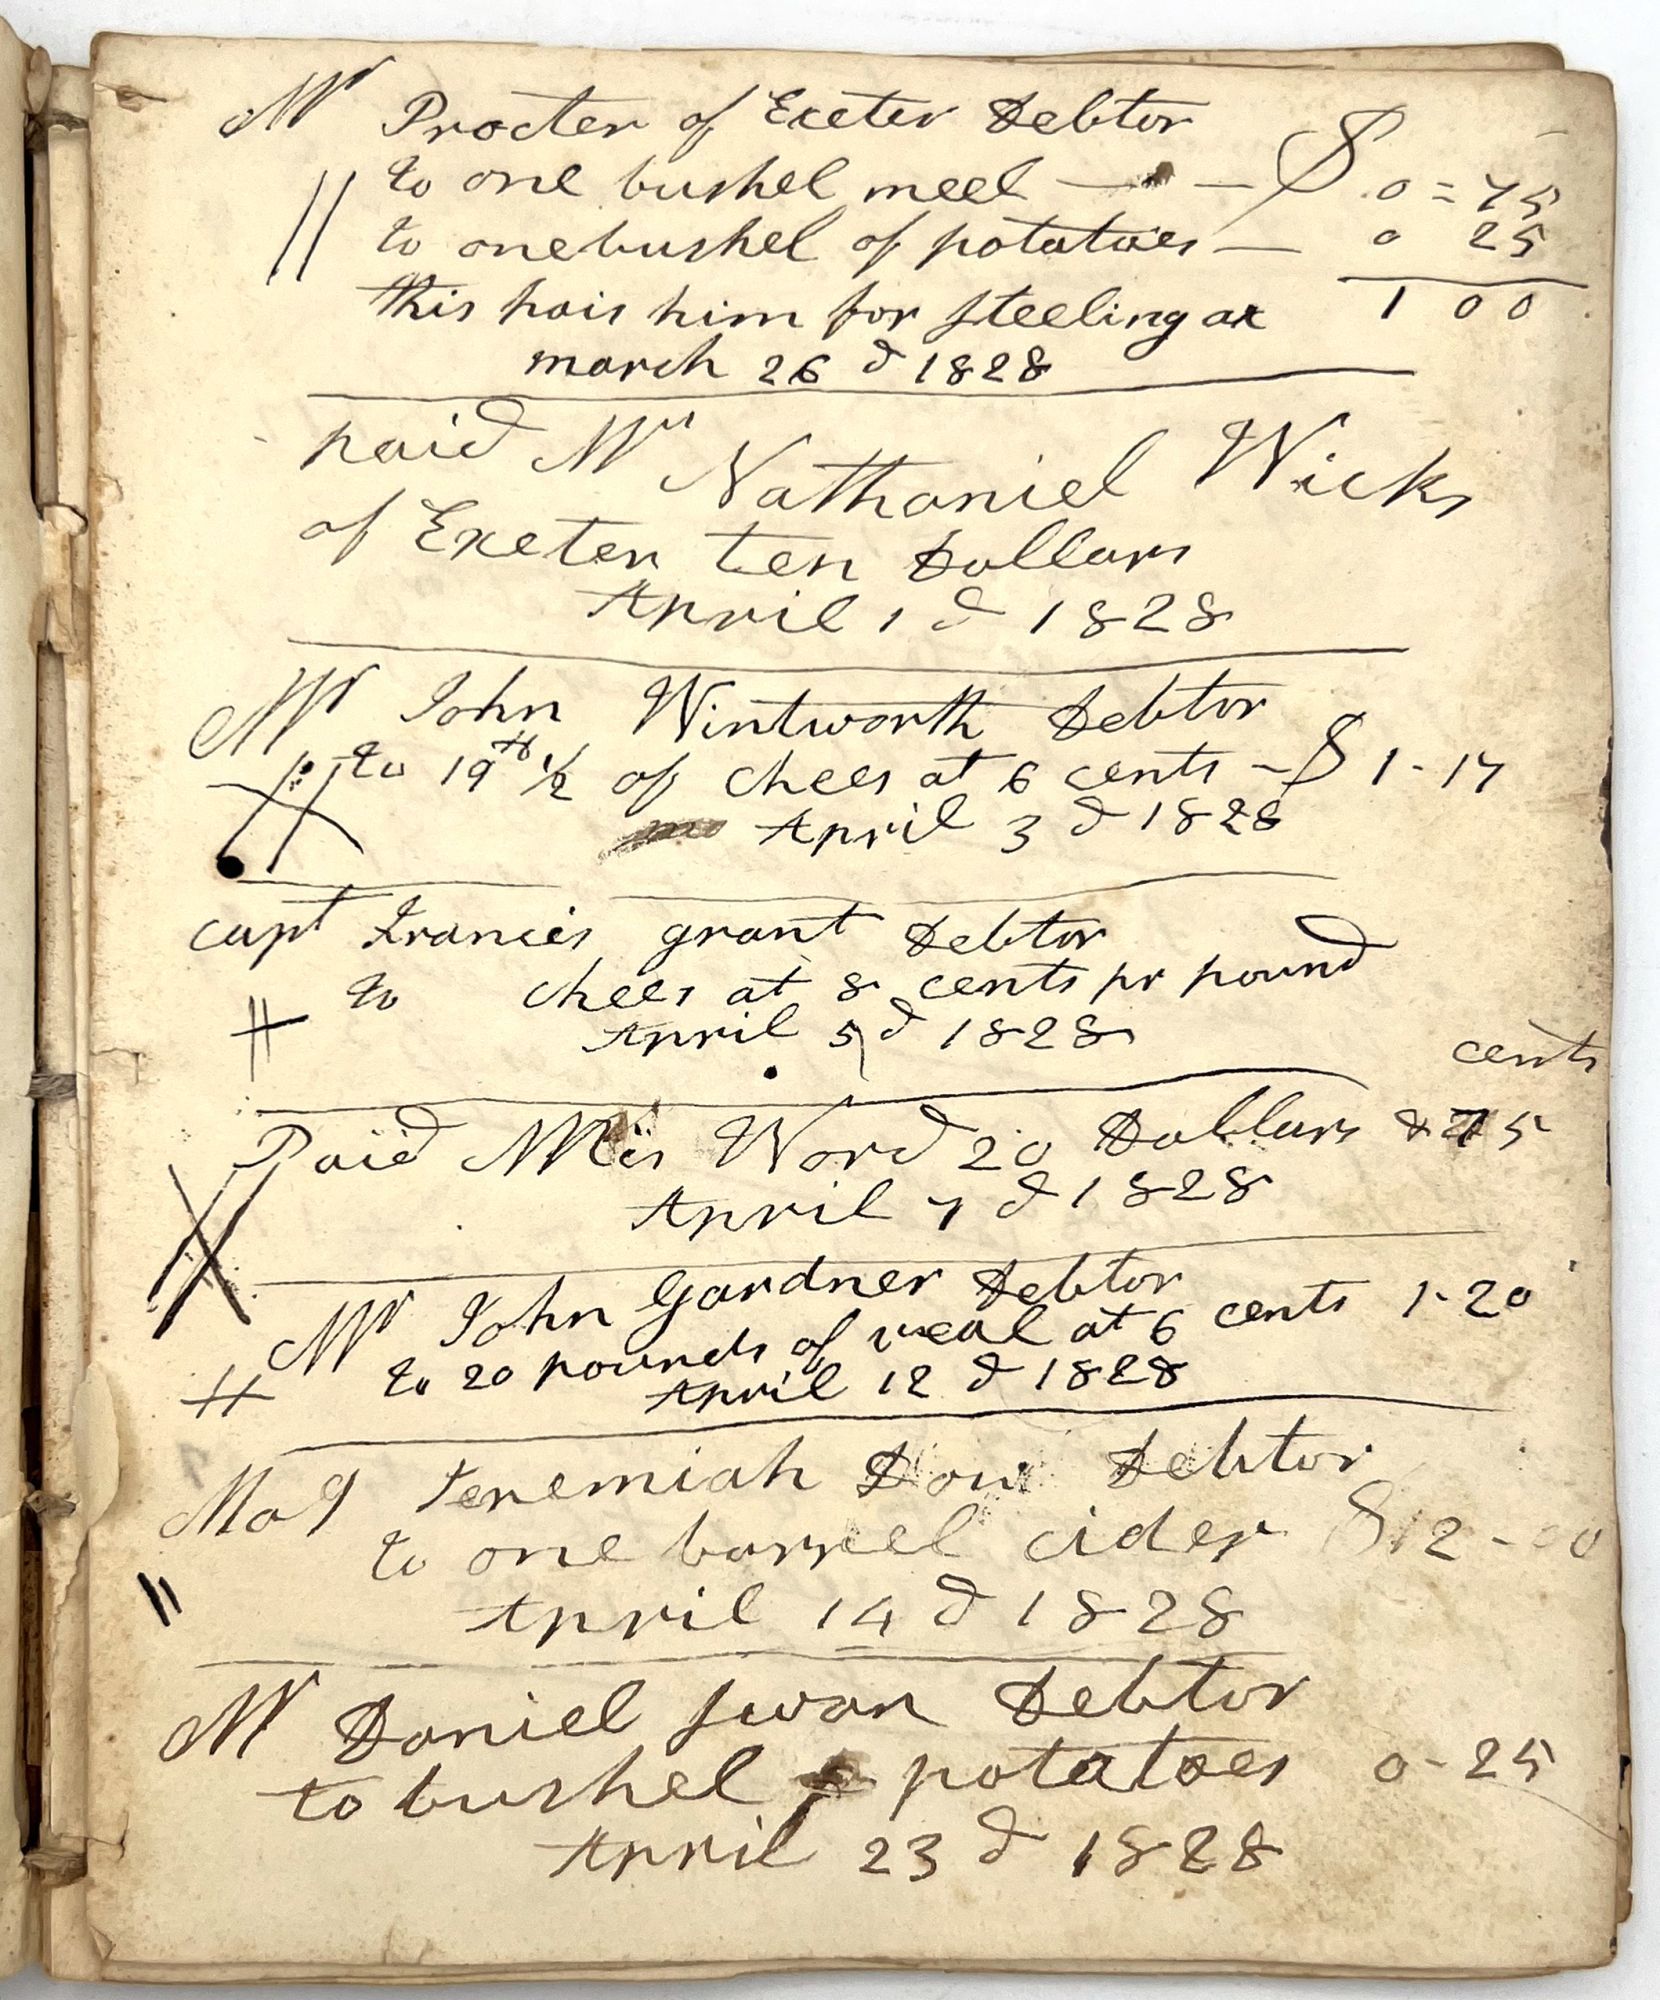 Mr Procter of Exeter Debtor
to one bushel meel — — $ 0 = 75
to one bushel of potatoes — 0 25
this pais him for steeling ax 1 00
march 26 d 1828
paid Mr Nathaniel Wicks
of Exeter ten Dollars
April 1 d 1828
Mr John Wintworth Debtor
to 19 ½ of chees at 6 cents - $ 1 - 17
April 3 d 1828
capt Francis grant Debtor
to chees at 8 cents pr pound
April 5 d 1828
cents
Paid Mis Word 20 Dollars & 75
April 7 d 1828
Mr John Gardner Debtor
to 20 pounds of veal at 6 cents 1-20
April 12 d 1828
Jeremiah Dow Debtor
to one barrel cider $ 2 - 00
April 14 d 1828
Mr Daniel swan Debtor
to bushel potatoes 0-25
April 23 d 1828